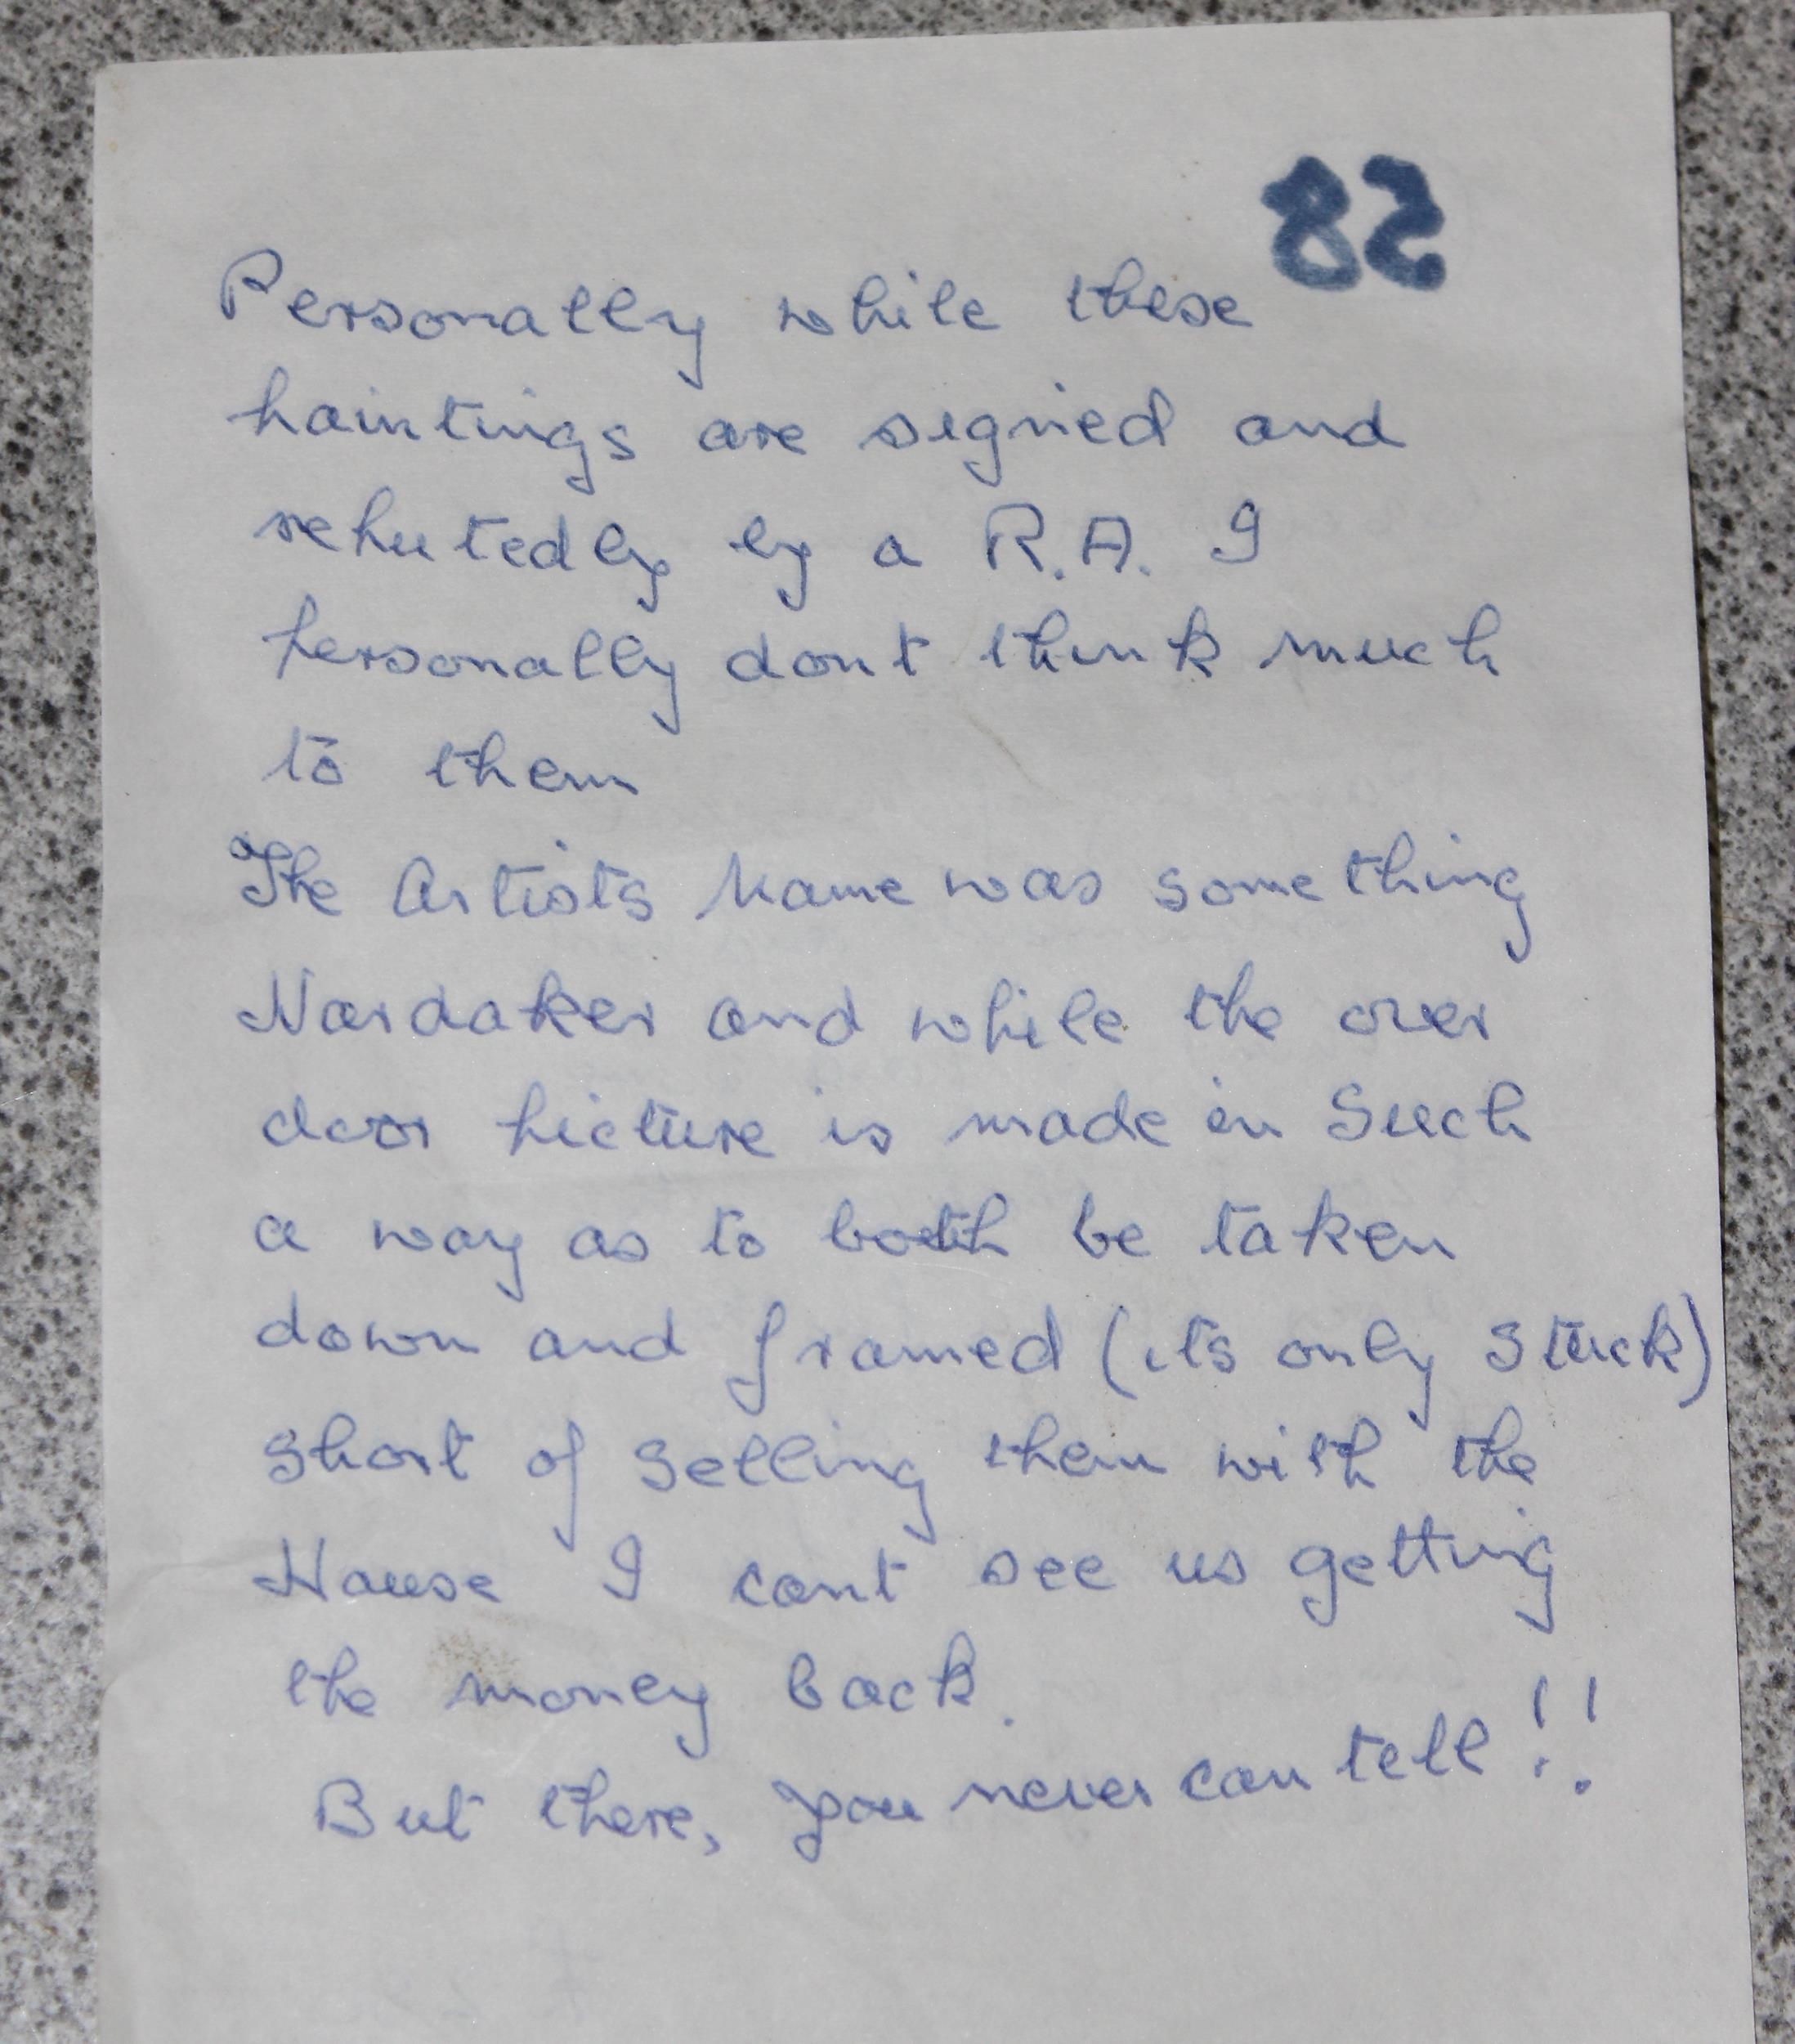 82
Personally while these
paintings are signed and
reputedly by a R.A. I
personally dont think much
to them
The Artists Name was something
Hardaker and while the over
door picture is made in Such
a way as to both be taken
down and framed (its only stuck)
Short of selling them with the
House I cant see us getting
the money back.
But there, you never can tell!!